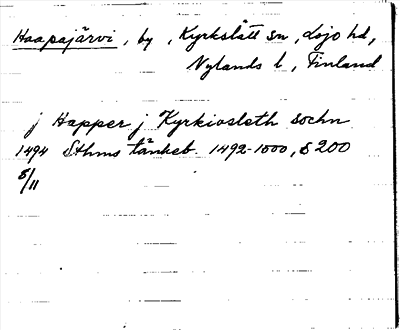 Haapajärvi, by, Kyrkslätt sn, Lojo hd,
Nylands l, Finland
j Happer j Kyrkiosleth sochn
1494 Sthms tänkeb. 1492-1500, s 200
5/11